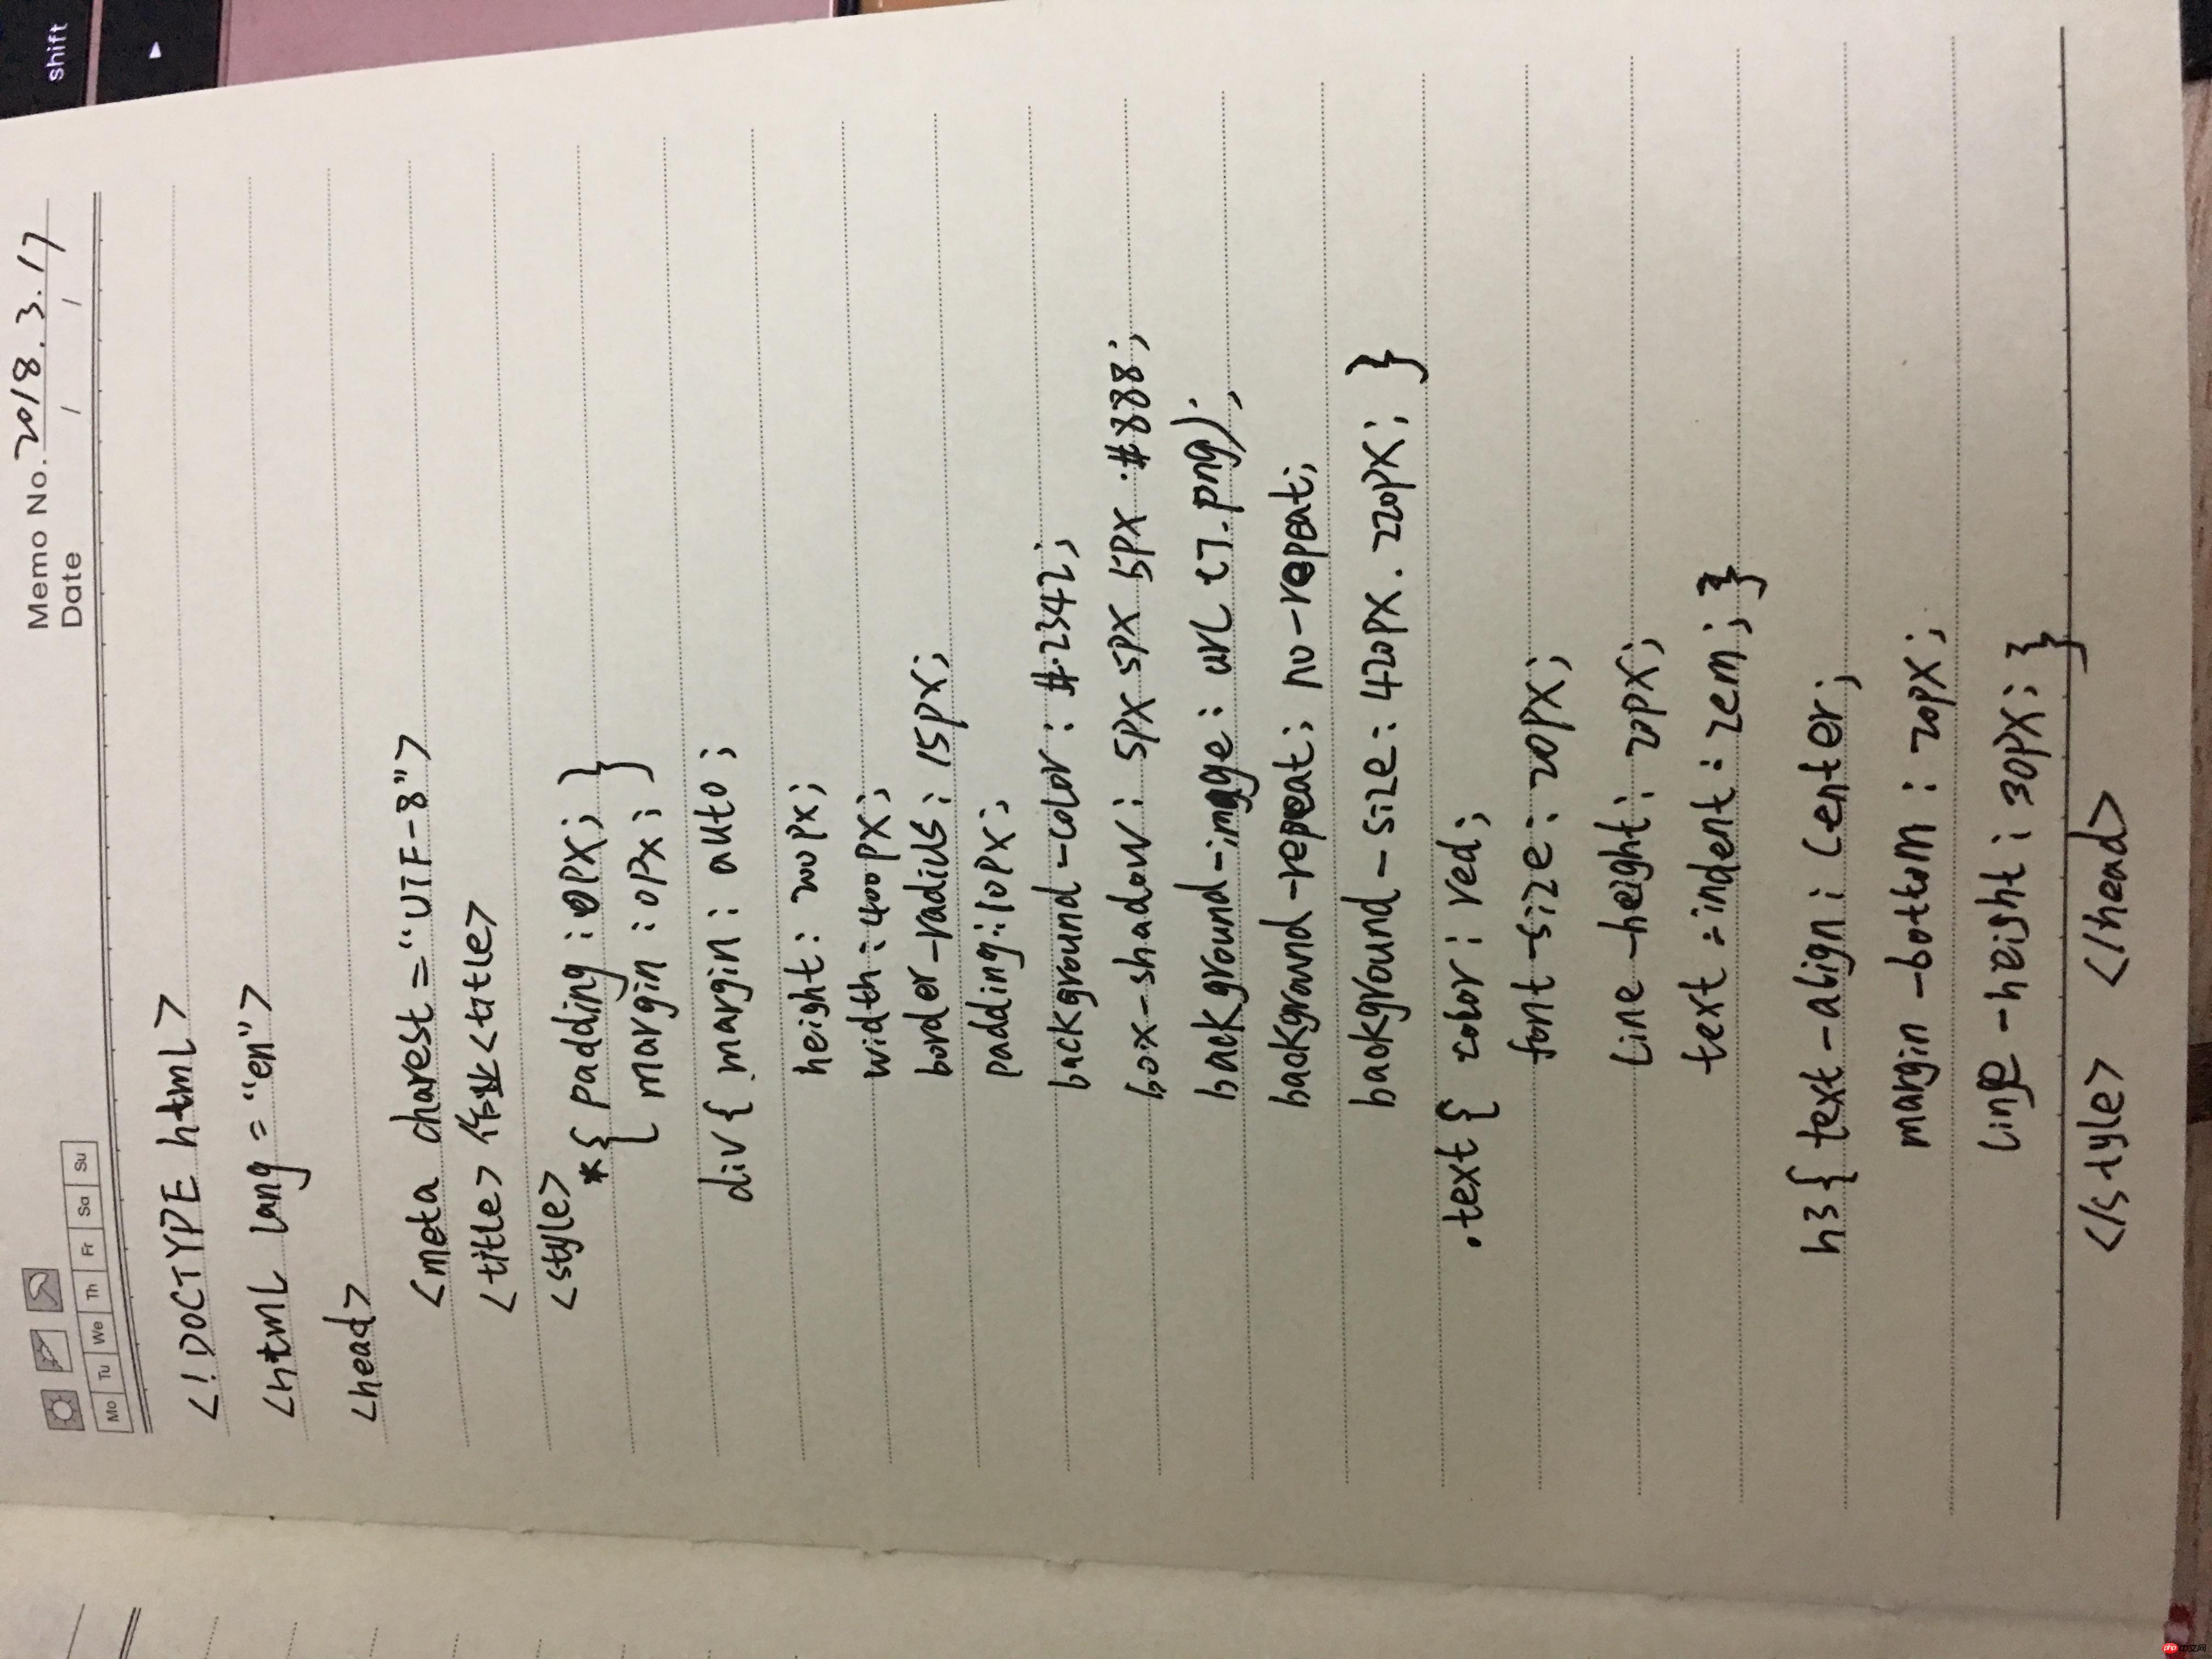 shift
Memo No. 2018.3.17
Date / /
Mo Tu We Th Fr Sa Su
<!DOCTYPE html>
<html lang="en">
<head>
<meta charest="UTF-8">
<title>作业<title>
<style>
*{ padding:0PX; }
margin:0PX; }
div{ margin: auto;
height: 200PX;
width:400PX;
border-radius:15PX;
padding:10PX;
background-color: #2342;
box-shadow: 5PX 5PX 5PX #888;
background-image: url (7.png);
background-repeat: no-repeat;
background-size:420PX. 220PX; }
.text{ color: red;
font-size: 20PX;
Line-height: 20PX;
text-indent: 2em; }
h3{ text-align: Center;
margin-bottom: 20PX;
Line-height: 30PX; }
</style> </head>
php 中文网